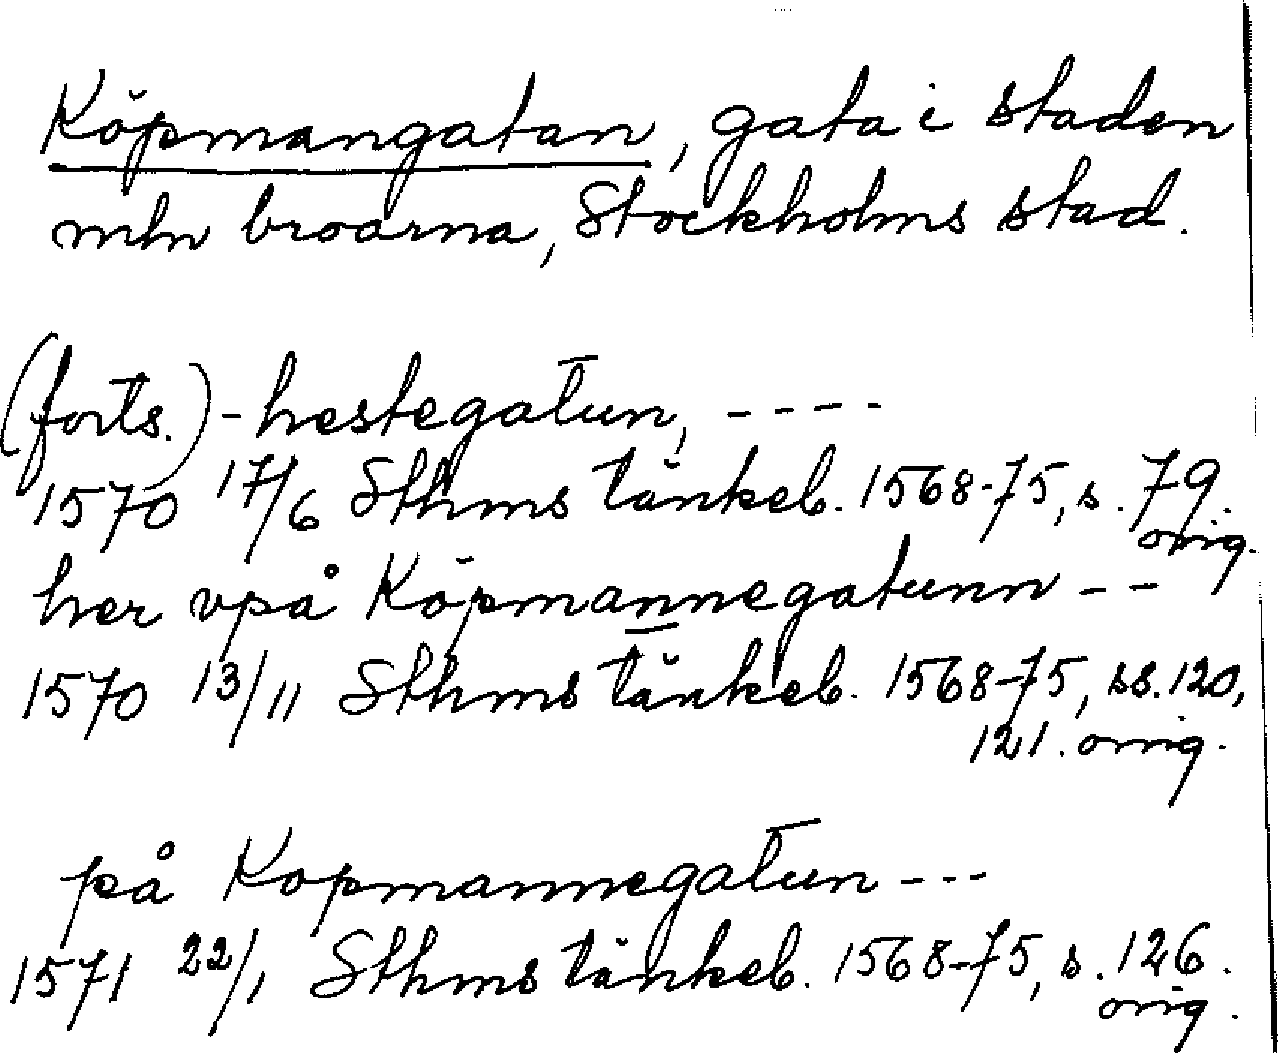 Köpmangatan, gata i staden
mln broarna, Stockholms stad.
(forts.) - hestegatun, ----
1570 17/6 Sthms tänkeb. 1568-75, s. 79.
orig.
her vpå Köpmannegatunn --
1570 13/11 Sthms tänkeb. 1568-75, ss. 120,
121. orig.
på Kopmannegatun ---
1571 22/1 Sthms tänkeb. 1568-75, s. 126.
orig.